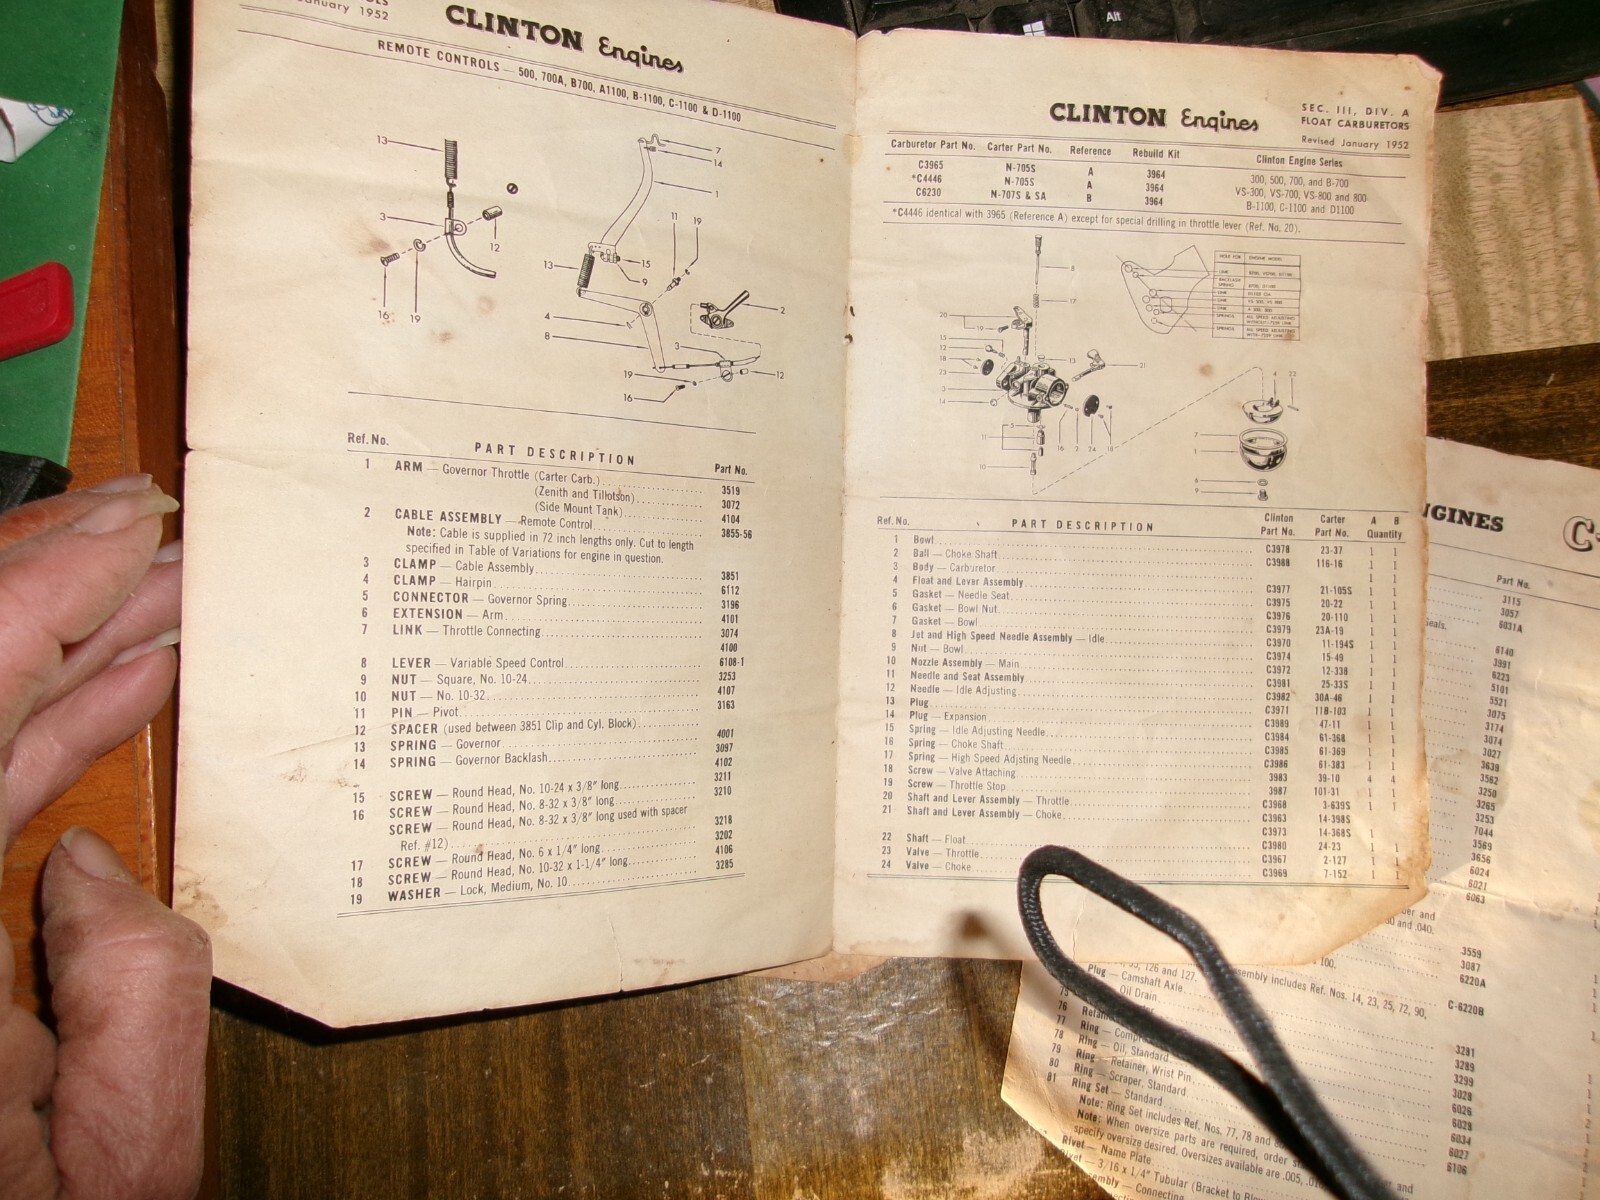 January 1952
CLINTON Engines
REMOTE CONTROLS — 500, 700A, B700, A1100, B-1100, C-1100 & D-1100
13
3
12
16
19
7
14
1
11
19
13
15
9
4
8
2
3
19
12
16
Ref. No. PART DESCRIPTION Part No.
1 ARM — Governor Throttle (Carter Carb.) 3519
(Zenith and Tillotson) 3072
(Side Mount Tank) 4104
2 CABLE ASSEMBLY — Remote Control 3855-56
Note: Cable is supplied in 72 inch lengths only. Cut to length
specified in Table of Variations for engine in question.
3 CLAMP — Cable Assembly 3851
4 CLAMP — Hairpin 6112
5 CONNECTOR — Governor Spring 3196
6 EXTENSION — Arm 4101
7 LINK — Throttle Connecting 3074
4100
8 LEVER — Variable Speed Control 6108-1
9 NUT — Square, No. 10-24 3253
10 NUT — No. 10-32 4107
11 PIN — Pivot 3163
12 SPACER (used between 3851 Clip and Cyl. Block) 4001
13 SPRING — Governor 3097
14 SPRING — Governor Backlash 4102
3211
15 SCREW — Round Head, No. 10-24 x 3/8" long 3210
16 SCREW — Round Head, No. 8-32 x 3/8" long
SCREW — Round Head, No. 8-32 x 3/8" long used with spacer 3218
Ref. #12) 3202
17 SCREW — Round Head, No. 6 x 1/4" long 4106
18 SCREW — Round Head, No. 10-32 x 1-1/4" long 3285
19 WASHER — Lock, Medium, No. 10
CLINTON Engines
SEC. III, DIV. A
FLOAT CARBURETORS
Revised January 1952
Carburetor Part No. Carter Part No. Reference Rebuild Kit Clinton Engine Series
C3965 N-705S A 3964 300, 500, 700, and B-700
*C4446 N-705S A 3964 VS-300, VS-700, VS-800 and 800
C6230 N-707S & SA B 3964 B-1100, C-1100 and D1100
*C4446 identical with 3965 (Reference A) except for special drilling in throttle lever (Ref. No. 20).
8
17
20
19
15
12
18
23
3
14
13
21
5
11
10
16 2 24 18
4 22
7
1
6
9
Ref. No. PART DESCRIPTION Clinton Part No. Carter Part No. A B Quantity
1 Bowl C3978 23-37 1 1
2 Ball — Choke Shaft C3988 116-16 1 1
3 Body — Carburetor 1 1
4 Float and Lever Assembly C3977 21-105S 1 1
5 Gasket — Needle Seat C3975 20-22 1 1
6 Gasket — Bowl Nut C3976 20-110 1 1
7 Gasket — Bowl C3979 23A-19 1 1
8 Jet and High Speed Needle Assembly — Idle C3970 11-194S 1 1
9 Nut — Bowl C3974 15-49 1 1
10 Nozzle Assembly — Main C3972 12-338 1 1
11 Needle and Seat Assembly C3981 25-33S 1 1
12 Needle — Idle Adjusting C3982 30A-46 1 1
13 Plug C3971 11B-103 1 1
14 Plug — Expansion C3989 47-11 1 1
15 Spring — Idle Adjusting Needle C3984 61-368 1 1
16 Spring — Choke Shaft C3985 61-369 1 1
17 Spring — High Speed Adjsting Needle C3986 61-383 1 1
18 Screw — Valve Attaching 3983 39-10 4 4
19 Screw — Throttle Stop 3987 101-31 1 1
20 Shaft and Lever Assembly — Throttle C3968 3-639S 1 1
21 Shaft and Lever Assembly — Choke C3963 14-398S
C3973 14-368S 1
22 Shaft — Float C3980 24-23 1 1
23 Valve — Throttle C3967 2-127 1 1
24 Valve — Choke C3969 7-152 1 1
NGINES C-
Part No.
3115
3057
6031A
6140
3991
6223
5101
5521
3075
3174
3074
3027
3639
3562
3250
3265
3253
7044
3569
3656
6024
6021
6063
and .040.
3559
3087
126 and 127. Assembly includes Ref. Nos. 14, 23, 25, 72, 90, 100. 6220A
Plug — Camshaft Axle C-6220B
Oil Drain
76
77 Ring — 3281
78 Ring — Oil, Standard 3289
79 Ring — Retainer, Wrist Pin 3299
80 Ring — Scraper, Standard 3028
81 Ring Set — Standard 6026
Note: Ring Set includes Ref. Nos. 77, 78 and 6028
Note: When oversize parts are required, order 6034
specify oversize desired. Oversizes available are .005, 6027
Rivet — Name Plate 6106
— 3/16 x 1/4" Tubular (Bracket to
Alt